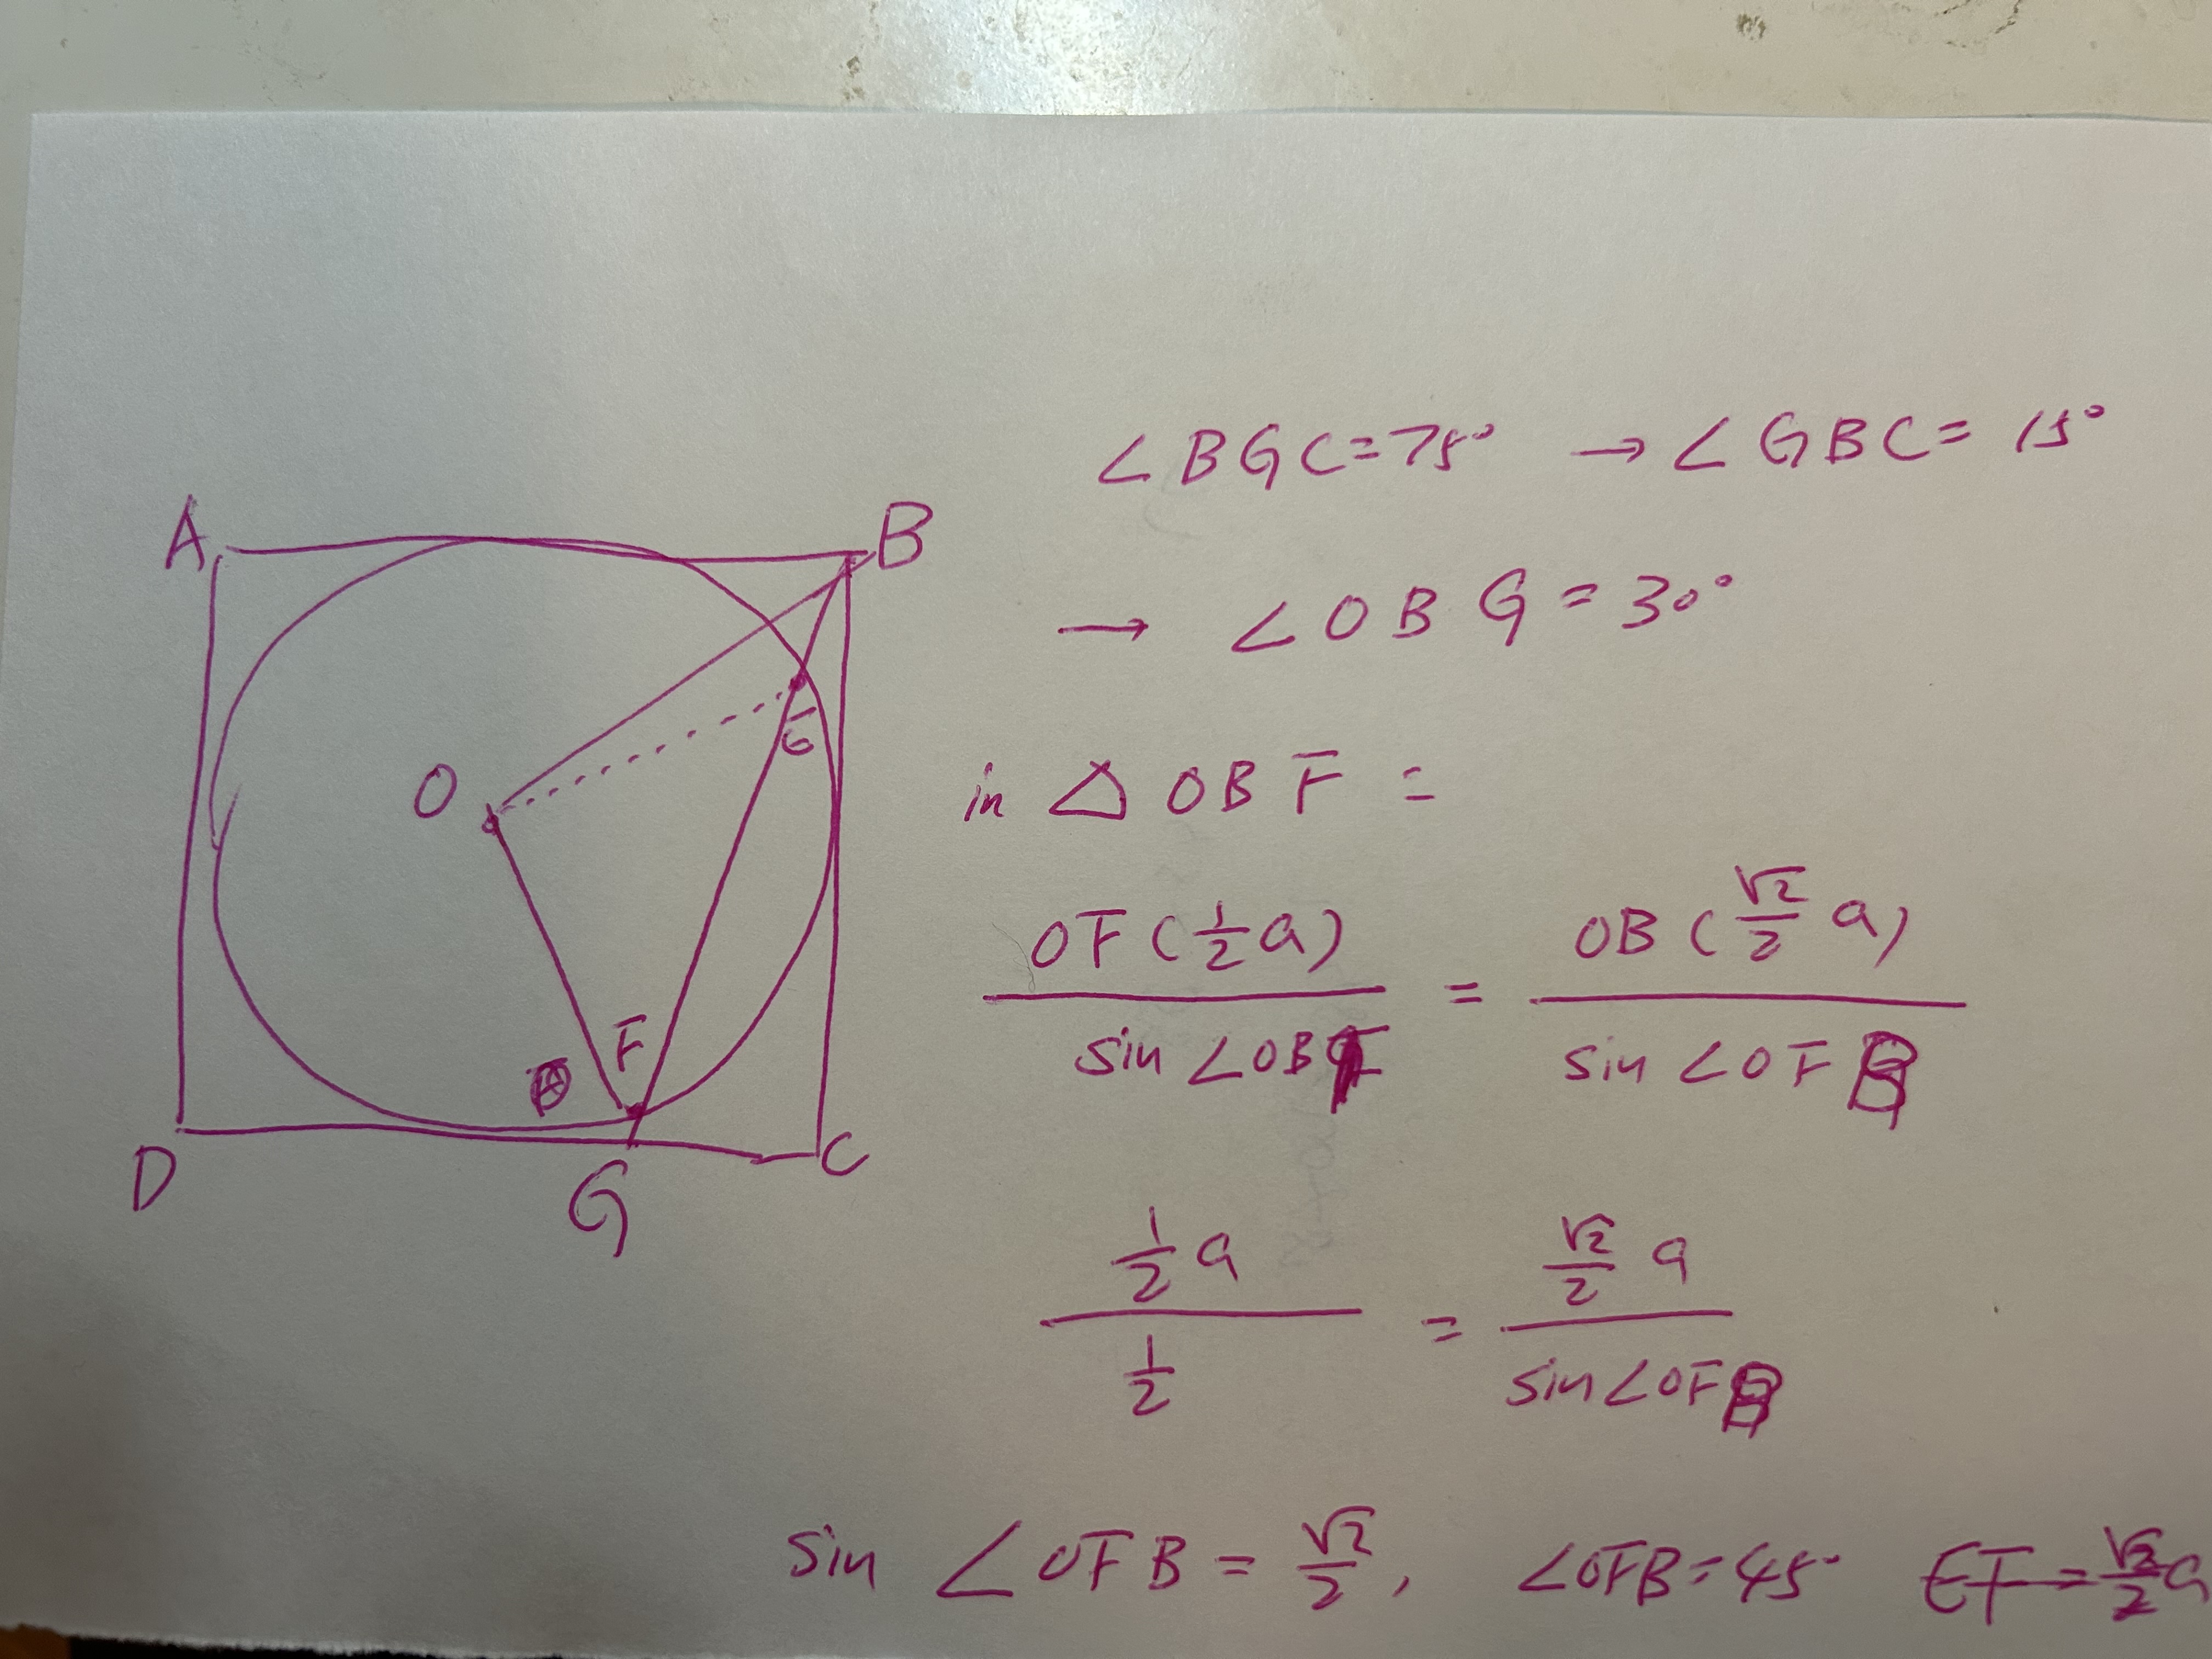 ∠BGC=75° → ∠GBC= 15°
A
B
→ ∠OBG=30°
E
O
in △OBF =
OF(1/2 a) / sin∠OBF = OB(√2/2 a) / sin∠OFB
F
D
G
C
1/2 a / 1/2 = √2/2 a / sin∠OFB
sin ∠OFB = √2/2, ∠OFB=45° EF=√2/2 a